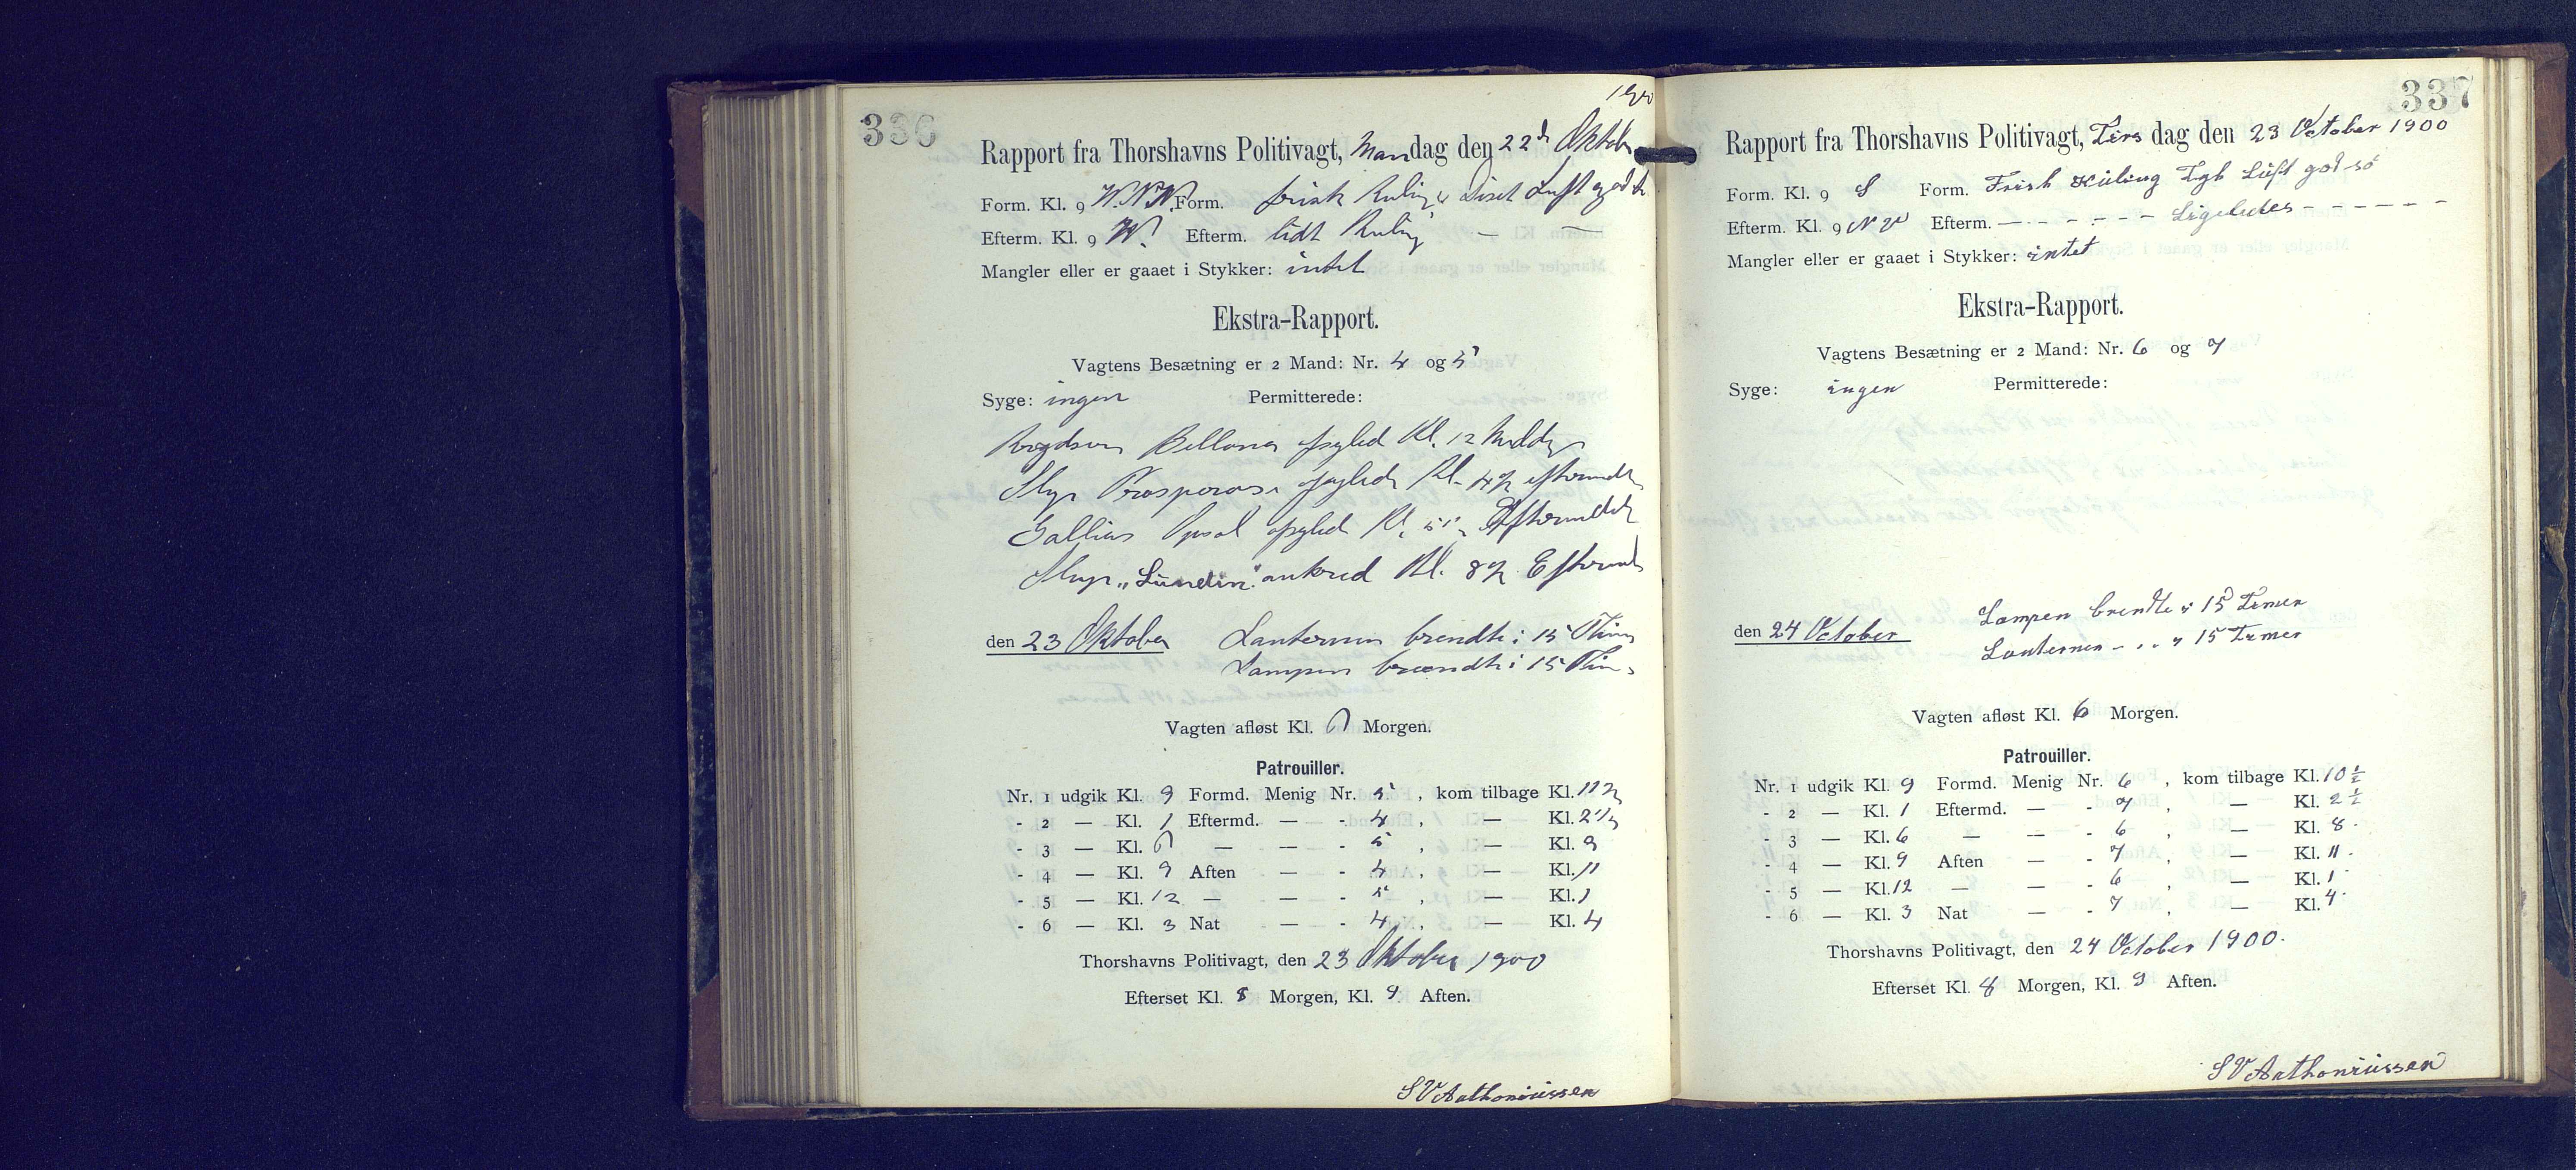 336
1900
Rapport fra Thorshavns Politivagt, Mandag den 22d Oktober
Form. Kl. 9 W.N.W. Form. frisk Kuling Diset Luft
Efterm. Kl. 9 W. Efterm. lidt Kuling — —
Mangler eller er gaaet i Stykker: intet
Ekstra-Rapport.
Vagtens Besætning er 2 Mand: Nr. 4 og 5
Syge: ingen Permitterede:
Bellona Kl. 12 Midda
Slup Kl. 4½
Kl. 5
Slup „Lundin" ankred Kl. 8½
den 23 Oktober Lanternen brendte i 15 Tim
Lampen brændte i 15 Tim
Vagten afløst Kl. 6 Morgen.
Patrouiller.
Nr. 1 udgik Kl. 9 Formd. Menig Nr. 5, kom tilbage Kl. 11½
- 2 — Kl. 1 Eftermd. — - 4, — Kl. 2½
- 3 — Kl. 6 — — - 5, — Kl. 9
- 4 — Kl. 9 Aften — - 4, — Kl. 11
- 5 — Kl. 12 — — - 5, — Kl. 1
- 6 — Kl. 3 Nat — - 4, — Kl. 4
Thorshavns Politivagt, den 23 Oktober 1900
Efterset Kl. 8 Morgen, Kl. 9 Aften.
S V Anthoniussen
337
Rapport fra Thorshavns Politivagt, Tirs dag den 23 October 1900
Form. Kl. 9 S Form. Frisk Küling Tyk Lüft god sö
Efterm. Kl. 9 NV Efterm. — - - - - — Ligeledes - - - - - -
Mangler eller er gaaet i Stykker: intet
Ekstra-Rapport.
Vagtens Besætning er 2 Mand: Nr. 6 og 7
Syge: ingen Permitterede:
den 24 October Lampen brendte i 15 Timer
Lanternen - .. i 15 Timer
Vagten afløst Kl. 6 Morgen.
Patrouiller.
Nr. 1 udgik Kl. 9 Formd. Menig Nr. 6, kom tilbage Kl. 10½
- 2 — Kl. 1 Eftermd. — - 7, — Kl. 2½
- 3 — Kl. 6 — — - 6, — Kl. 8.
- 4 — Kl. 9 Aften — - 7, — Kl. 11.
- 5 — Kl. 12 — — - 6, — Kl. 1
- 6 — Kl. 3 Nat — - 7, — Kl. 4.
Thorshavns Politivagt, den 24 October 1900.
Efterset Kl. 8 Morgen, Kl. 9 Aften.
S V Anthoniussen